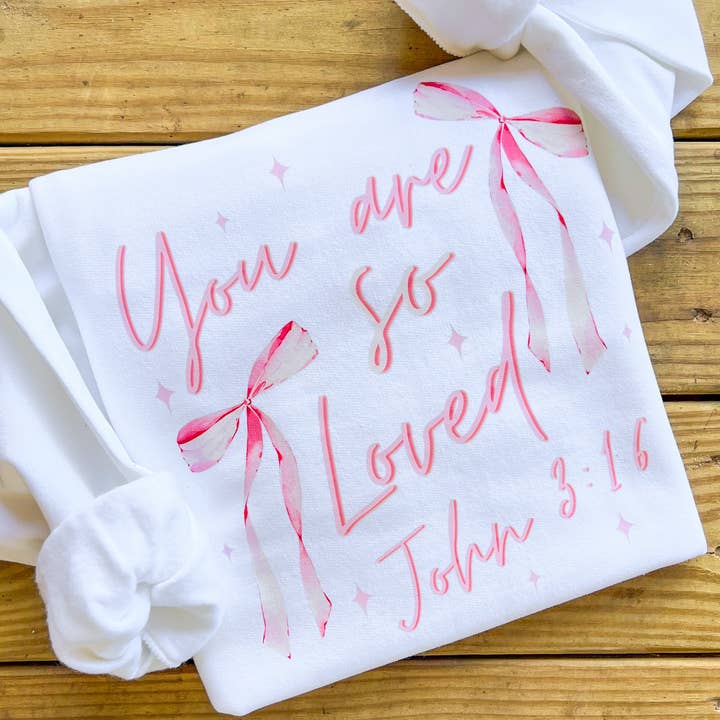 You are
so
Loved
John 3:16